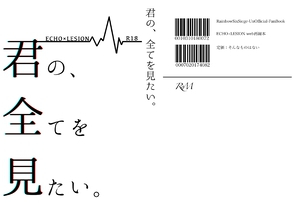 ECHO×LESION
R18
君の、
全てを
見たい。
君の、全てを見たい。
RainbowSixSiege UnOfficial FanBook
ECHO×LESION web再録本
定価：そんなものはない
R-18